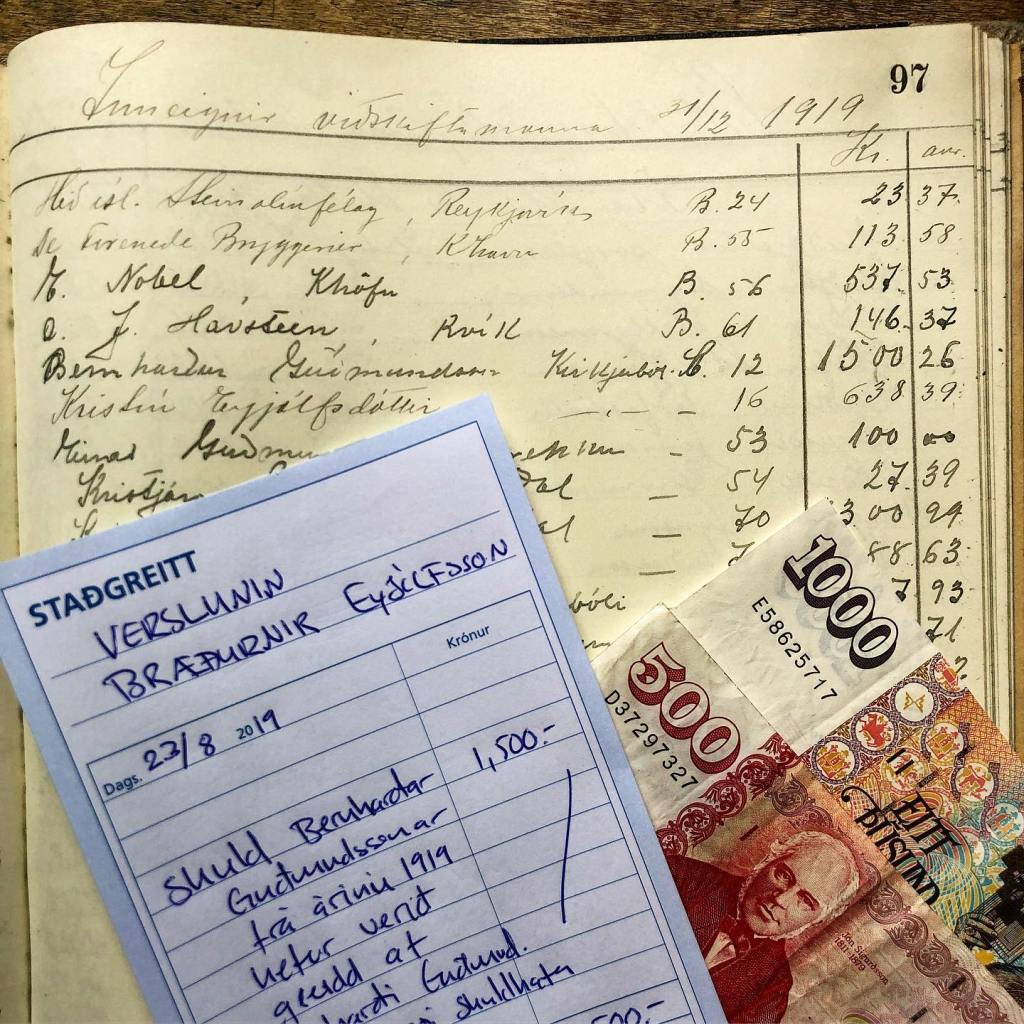 97
Inneignir viðskiftamanna 31/12 1919
Kr. aur.
Hið ísl. Steinolíufélag, Reykjavík B. 24 23 37
De Forenede Bryggerier, Khavn B. 55 113 58
Nobel, Khöfn B. 56 537 53
J. Havsteen, Rvík B. 61 146 37
Bernharður Guðmundsson Kirkjuból 12 1500 26
Kristín Eyjólfsdóttir — " — – 16 638 39
Guðmun – 53 100 00
Kristján dal – 54 27 39
al – 70 300 99
88 63
bóli 7 93
71
STAÐGREITT
VERSLUNIN
BRÆÐURNIR EYJÓLFSSON
Krónur
Dags. 23/8 2019
1,500.-
Skuld Bernharðar
Guðmundssonar
frá árinu 1919
hefur verið
greidd af
Guðmund.
skuldhafa
500.-
1000
E58625717
500
D37297327
EITT
ÞÚSUND
Jón Sigurðsson
1811-1879